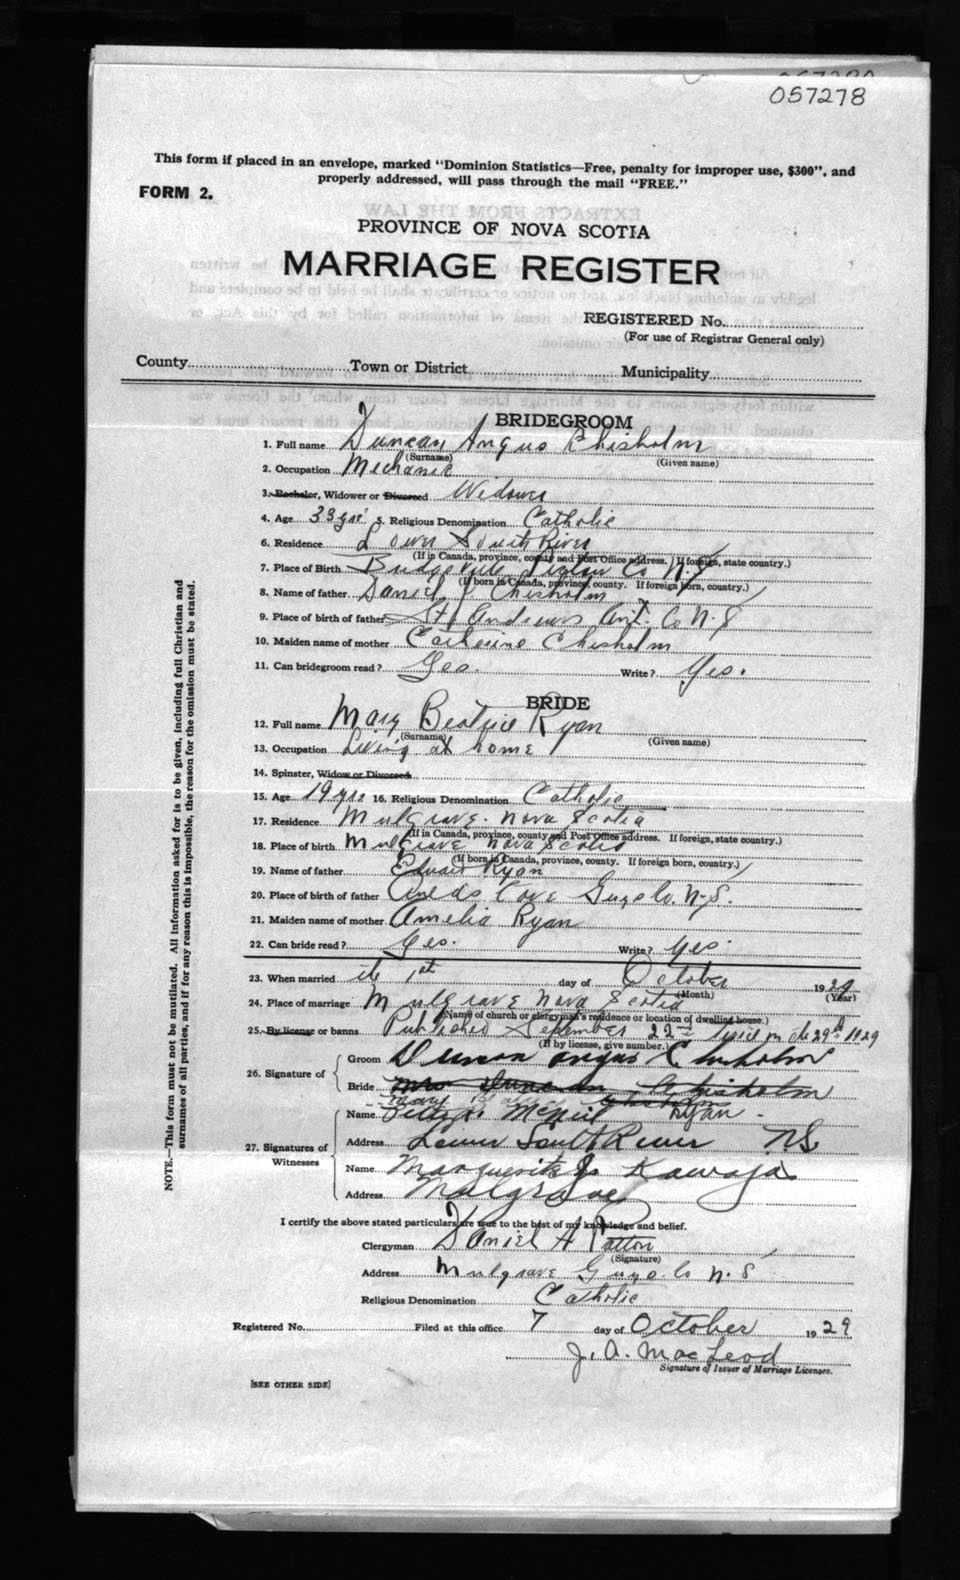 057278
This form if placed in an envelope, marked "Dominion Statistics—Free, penalty for improper use, $300", and
properly addressed, will pass through the mail "FREE."
FORM 2.
PROVINCE OF NOVA SCOTIA
MARRIAGE REGISTER
REGISTERED No.
(For use of Registrar General only)
County Town or District Municipality
BRIDEGROOM
1. Full name Duncan Angus Chisholm
(Surname) (Given name)
2. Occupation Mechanic
3. Bachelor, Widower or Divorced Widower
4. Age 33 yrs 5. Religious Denomination Catholic
6. Residence Lower South River
(If in Canada, province, county and Post Office address. If foreign, state country.)
7. Place of Birth Bridgeville Pictou Co N.S
(If born in Canada, province, county. If foreign born, country.)
8. Name of father Daniel J Chisholm
9. Place of birth of father St Andrews Ant. Co N.S
10. Maiden name of mother Catherine Chisholm
11. Can bridegroom read? Yes. Write? Yes.
BRIDE
12. Full name Mary Beatrice Ryan
(Surname) (Given name)
13. Occupation Living at home
14. Spinster, Widow or Divorced
15. Age 19 yrs 16. Religious Denomination Catholic
17. Residence Mulgrave. Nova Scotia
(If in Canada, province, county and Post Office address. If foreign, state country.)
18. Place of birth Mulgrave Nova Scotia
(If born in Canada, province, county. If foreign born, country.)
19. Name of father Edward Ryan
20. Place of birth of father Cove Guys Co. N.S.
21. Maiden name of mother Amelia Ryan
22. Can bride read? Yes. Write? Yes.
23. When married the 1st day of October 1929
(Month) (Year)
24. Place of marriage Mulgrave Nova Scotia
(Name of church or clergyman's residence or location of dwelling house.)
25. By license or banns Published September 22nd on the 29th 1929
(If by license, give number.)
26. Signature of
Groom Duncan Angus Chisholm
Bride Mrs Duncan Chisholm
Mary Ryan
27. Signatures of
Witnesses
Name McNeil
Address Lower South River NS
Name Marguerite J. Kawaja
Address Mulgrave
I certify the above stated particulars are true to the best of my knowledge and belief.
Clergyman Daniel A Patton
(Signature)
Address Mulgrave Guys Co N.S
Religious Denomination Catholic
Registered No. Filed at this office 7 day of October 1929
J. A. MacLeod
Signature of Issuer of Marriage Licenses.
[SEE OTHER SIDE]
NOTE.—This form must not be mutilated. All information asked for is to be given, including full Christian and
surnames of all parties, and if for any reason this is impossible, the reason for the omission must be stated.